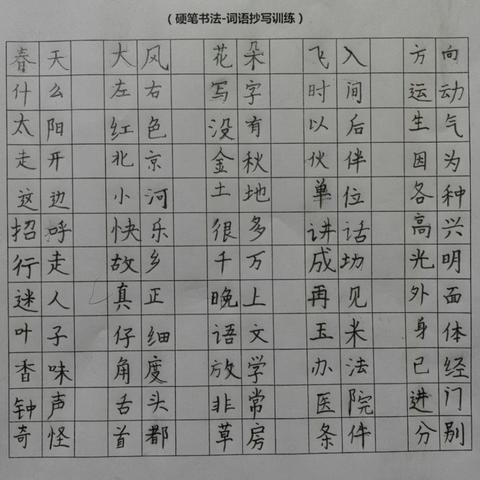 （硬笔书法-词语抄写训练）
春天 大风 花朵 飞入 方向
什么 左右 写字 时间 运动
太阳 红色 没有 以后 生气
走开 北京 金秋 伙伴 因为
这边 小河 土地 单位 各种
招呼 快乐 很多 讲话 高兴
行走 故乡 千万 成功 光明
迷人 真正 晚上 再见 外面
叶子 仔细 语文 玉米 身体
香味 角度 放学 办法 已经
钟声 舌头 非常 医院 进门
奇怪 首都 草房 条件 分别